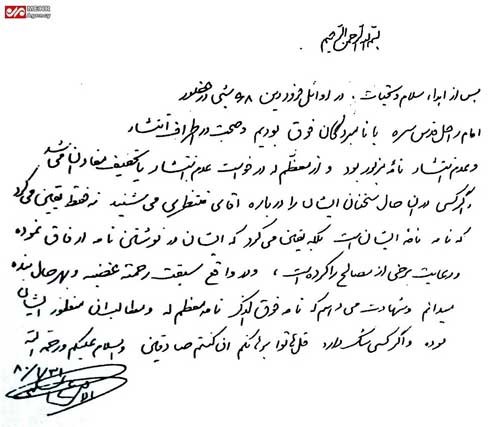 MEHR
Agency
بسم الله الرحمن الرحیم
پس از اهداء سلام و تحیات . در اوائل فروردین ۶۸ شبی در حضور
امام راحل قدس سره با نامبردگان فوق بودیم و صحبت در اطراف انتشار
و عدم انتشار نامه مزبور بود و از معظم له درخواست عدم انتشار یا تخفیف مفاد آن می‌شد
و اگر کسی در آن حال سخنان ایشان را درباره آقای منتظری می‌شنید نه فقط یقین می‌کرد
که نامه نامه ایشان است بلکه یقین می‌کرد که ایشان در نوشتن نامه ارفاق نموده
و رعایت برخی از مصالح را کرده است ، و در واقع سبقت رحمته غضبه و بهر حال بنده
میدانم و شهادت می‌دهم که نامه فوق الذکر نامه معظم له و مطالب آن منظور ایشان
بوده و اگر کسی شک دارد قل هاتوا برهانکم ان کنتم صادقین والسلام علیکم و رحمة الله